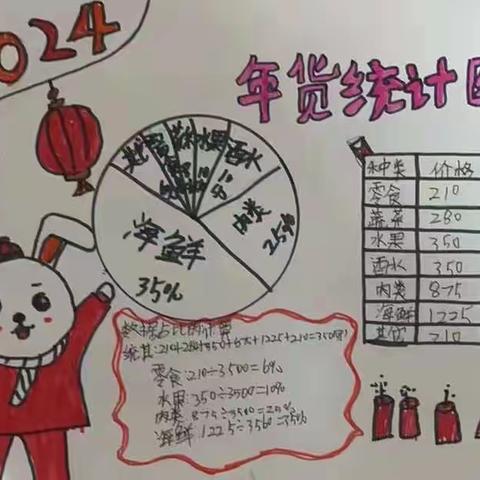 2024
年货统计图
零食
蔬菜
水果
10%
酒水
10%
肉类
25%
海鲜
35%
种类 价格
零食 210
蔬菜 280
水果 350
酒水 350
肉类 875
海鲜 1225
其它 210
数据占比的计算
零食:210÷3500=6%
水果:350÷3500=10%
肉类:875÷3500=25%
海鲜:1225÷3500=35%